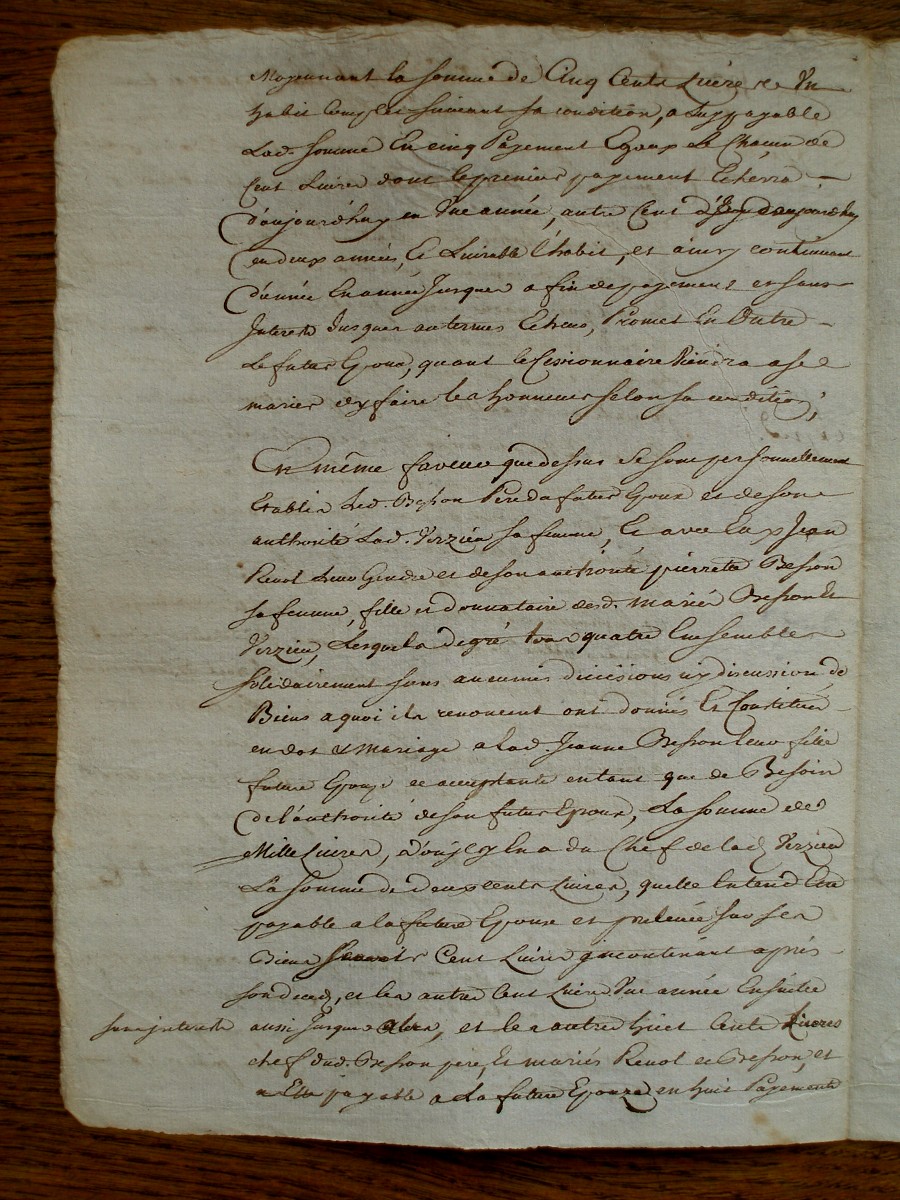 Moyennant la somme de Cinq Cents Livres et Un
habit complet suivant sa condition, a luy payable
Lad. somme En cinq Payement Egaux de Chacun de
Cent Livres dont le premier payement Echerra
d'aujourd'huy en Une année, autre Cent d'aujourdhuy
en deux années, Et Livrable l'habit, et ainsy continuant
d'année En année Jusques a fin de payement et sans
Interests Jusques aux termes Echeus, Promet En Outre
Le futur Epoux, quant le Cessionnaire Viendra a se
marier dy faire les honneurs selon sa condition,
En même faveur que dessus se sont personnellement
Etablis Led. Besson Pere da future Epouse et de son
authorité Lad. Verzieu sa femme, Et avec Eux Jean
Revol Leur Gendre et de son authorité pierrette Besson
sa femme, fille et donnataire desd. mariés Besson Et
Verzieu, Lesquels de gré tous quatre Ensemble
solidairement sans aucunes divisions ny discussion de
Biens a quoi ils renoncent ont donnés Et Constitué
en dot et mariage a lad. Jeanne Besson leur fille
future Epouze et acceptante entant que de Besoin
De l'authorité de son futur Epoux, La somme de
Mille Livres, D'ou il y En a du Chef de lad. Verzieu
La somme de deux cents Livres, quelle Entend Etre
payable a la future Epouse et prelevée sur ses
Biens Cent Livres incontenant aprés
son deced, et les autre Cent Livres Une année Ensuitte
sans interests
aussi Jusques alors, et les autre huit Cents Livres
chef dud. Besson pere, Et mariés Revol et Besson, et
payable a La future Epouze en huit Payements